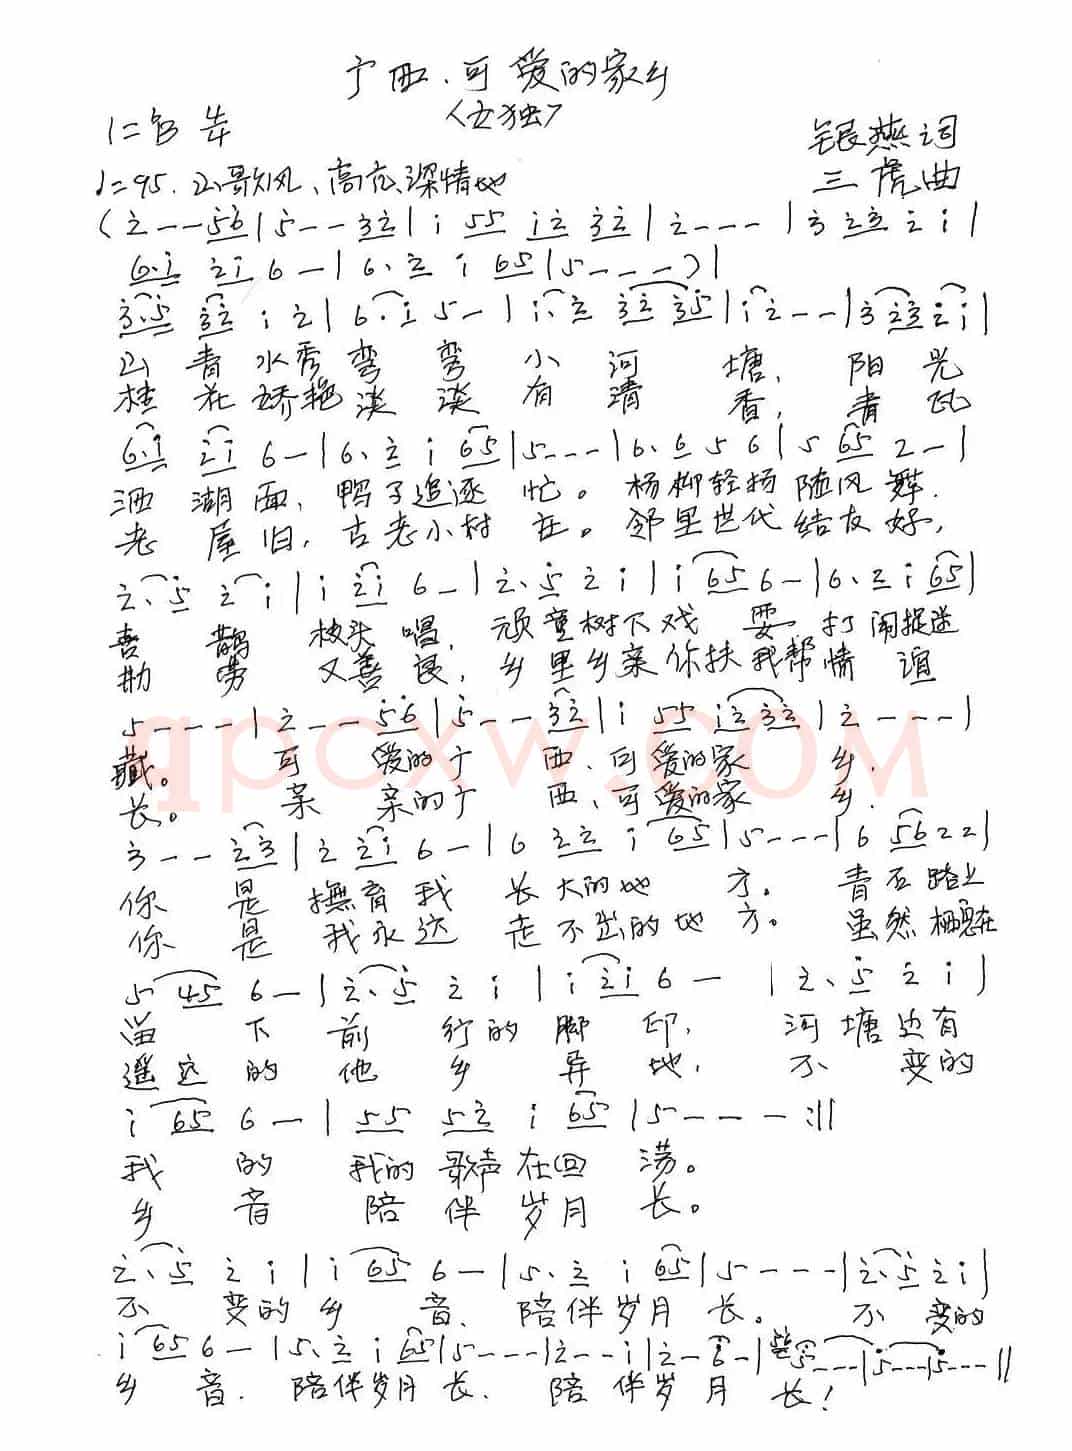 广西、可爱的家乡
〈女独〉
1=♭B 4/4
银燕词
♩=95. 山歌风、高亢、深情地
三虎曲
(2̇ - - 5̇6̇ | 5̇ - - 3̇2̇ | 1̇ 55 1̇2̇ 3̇2̇ | 2̇ - - - | 3̇ 2̇3̇ 2̇ 1̇ |
6·1̇ 2̇1̇ 6 - | 6·2̇ 1̇ 65 | 5 - - - ) |
3̇·5̇ 3̇2̇ 1̇ 2̇ | 6·1̇ 5 - | 1̇·2̇ 3̇2̇ 3̇5̇ | 1̇ 2̇ - - | 3̇ 2̇3̇ 2̇ 1̇ |
山青水秀弯弯小河塘，阳光
桂花娇艳淡淡有清香，青瓦
6·1̇ 2̇1̇ 6 - | 6·2̇ 1̇ 65 | 5 - - - | 6·6 5 6 | 5 65 2 - |
洒湖面，鸭子追逐忙。杨柳轻扬随风舞.
老屋旧，古老小村在。邻里世代结友好，
2̇·5̇ 2̇ 1̇ | 1̇ 2̇1̇ 6 - | 2̇·5̇ 2̇ 1̇ | 1̇ 65 6 - | 6·2̇ 1̇ 65 |
喜鹊枝头唱，顽童树下戏耍打闹捉迷
勤劳又善良，乡里乡亲你扶我帮情谊
5 - - - | 2̇ - - 5̇6̇ | 5̇ - - 3̇2̇ | 1̇ 55 1̇2̇ 3̇2̇ | 2̇ - - - |
qpcxw.com
藏。可爱的广西、可爱的家乡.
长。亲亲的广西、可爱的家乡.
3̇ - - 2̇3̇ | 2̇ 2̇1̇ 6 - | 6 2̇2̇ 1̇ 65 | 5 - - - | 6 56 2 2 |
你是撫育我长大的地方。青石路上
你是我永远走不出的地方。虽然栖息在
5 45 6 - | 2̇·5̇ 2̇ 1̇ | 1̇ 2̇1̇ 6 - | 2̇·5̇ 2̇ 1̇ |
留下前行的脚印，河塘边有
遥远的他乡异地，不变的
1̇ 65 6 - | 55 52̇ 1̇ 65 | 5 - - - :||
我的我的歌声在回荡。
乡音陪伴岁月长。
2̇·5̇ 2̇ 1̇ | 1̇ 65 6 - | 5·2̇ 1̇ 65 | 5 - - - | 2̇·5̇ 2̇ 1̇ |
不变的乡音.陪伴岁月长。不变的
1̇ 65 6 - | 5·2̇ 1̇ 65 | 5 - - - | 2̇ - - 1̇ | 2̇ - 6̇ - | 5̇ - - - | 5̇ - - - | 5̇ - - - ||
乡音.陪伴岁月长.陪伴岁月长！